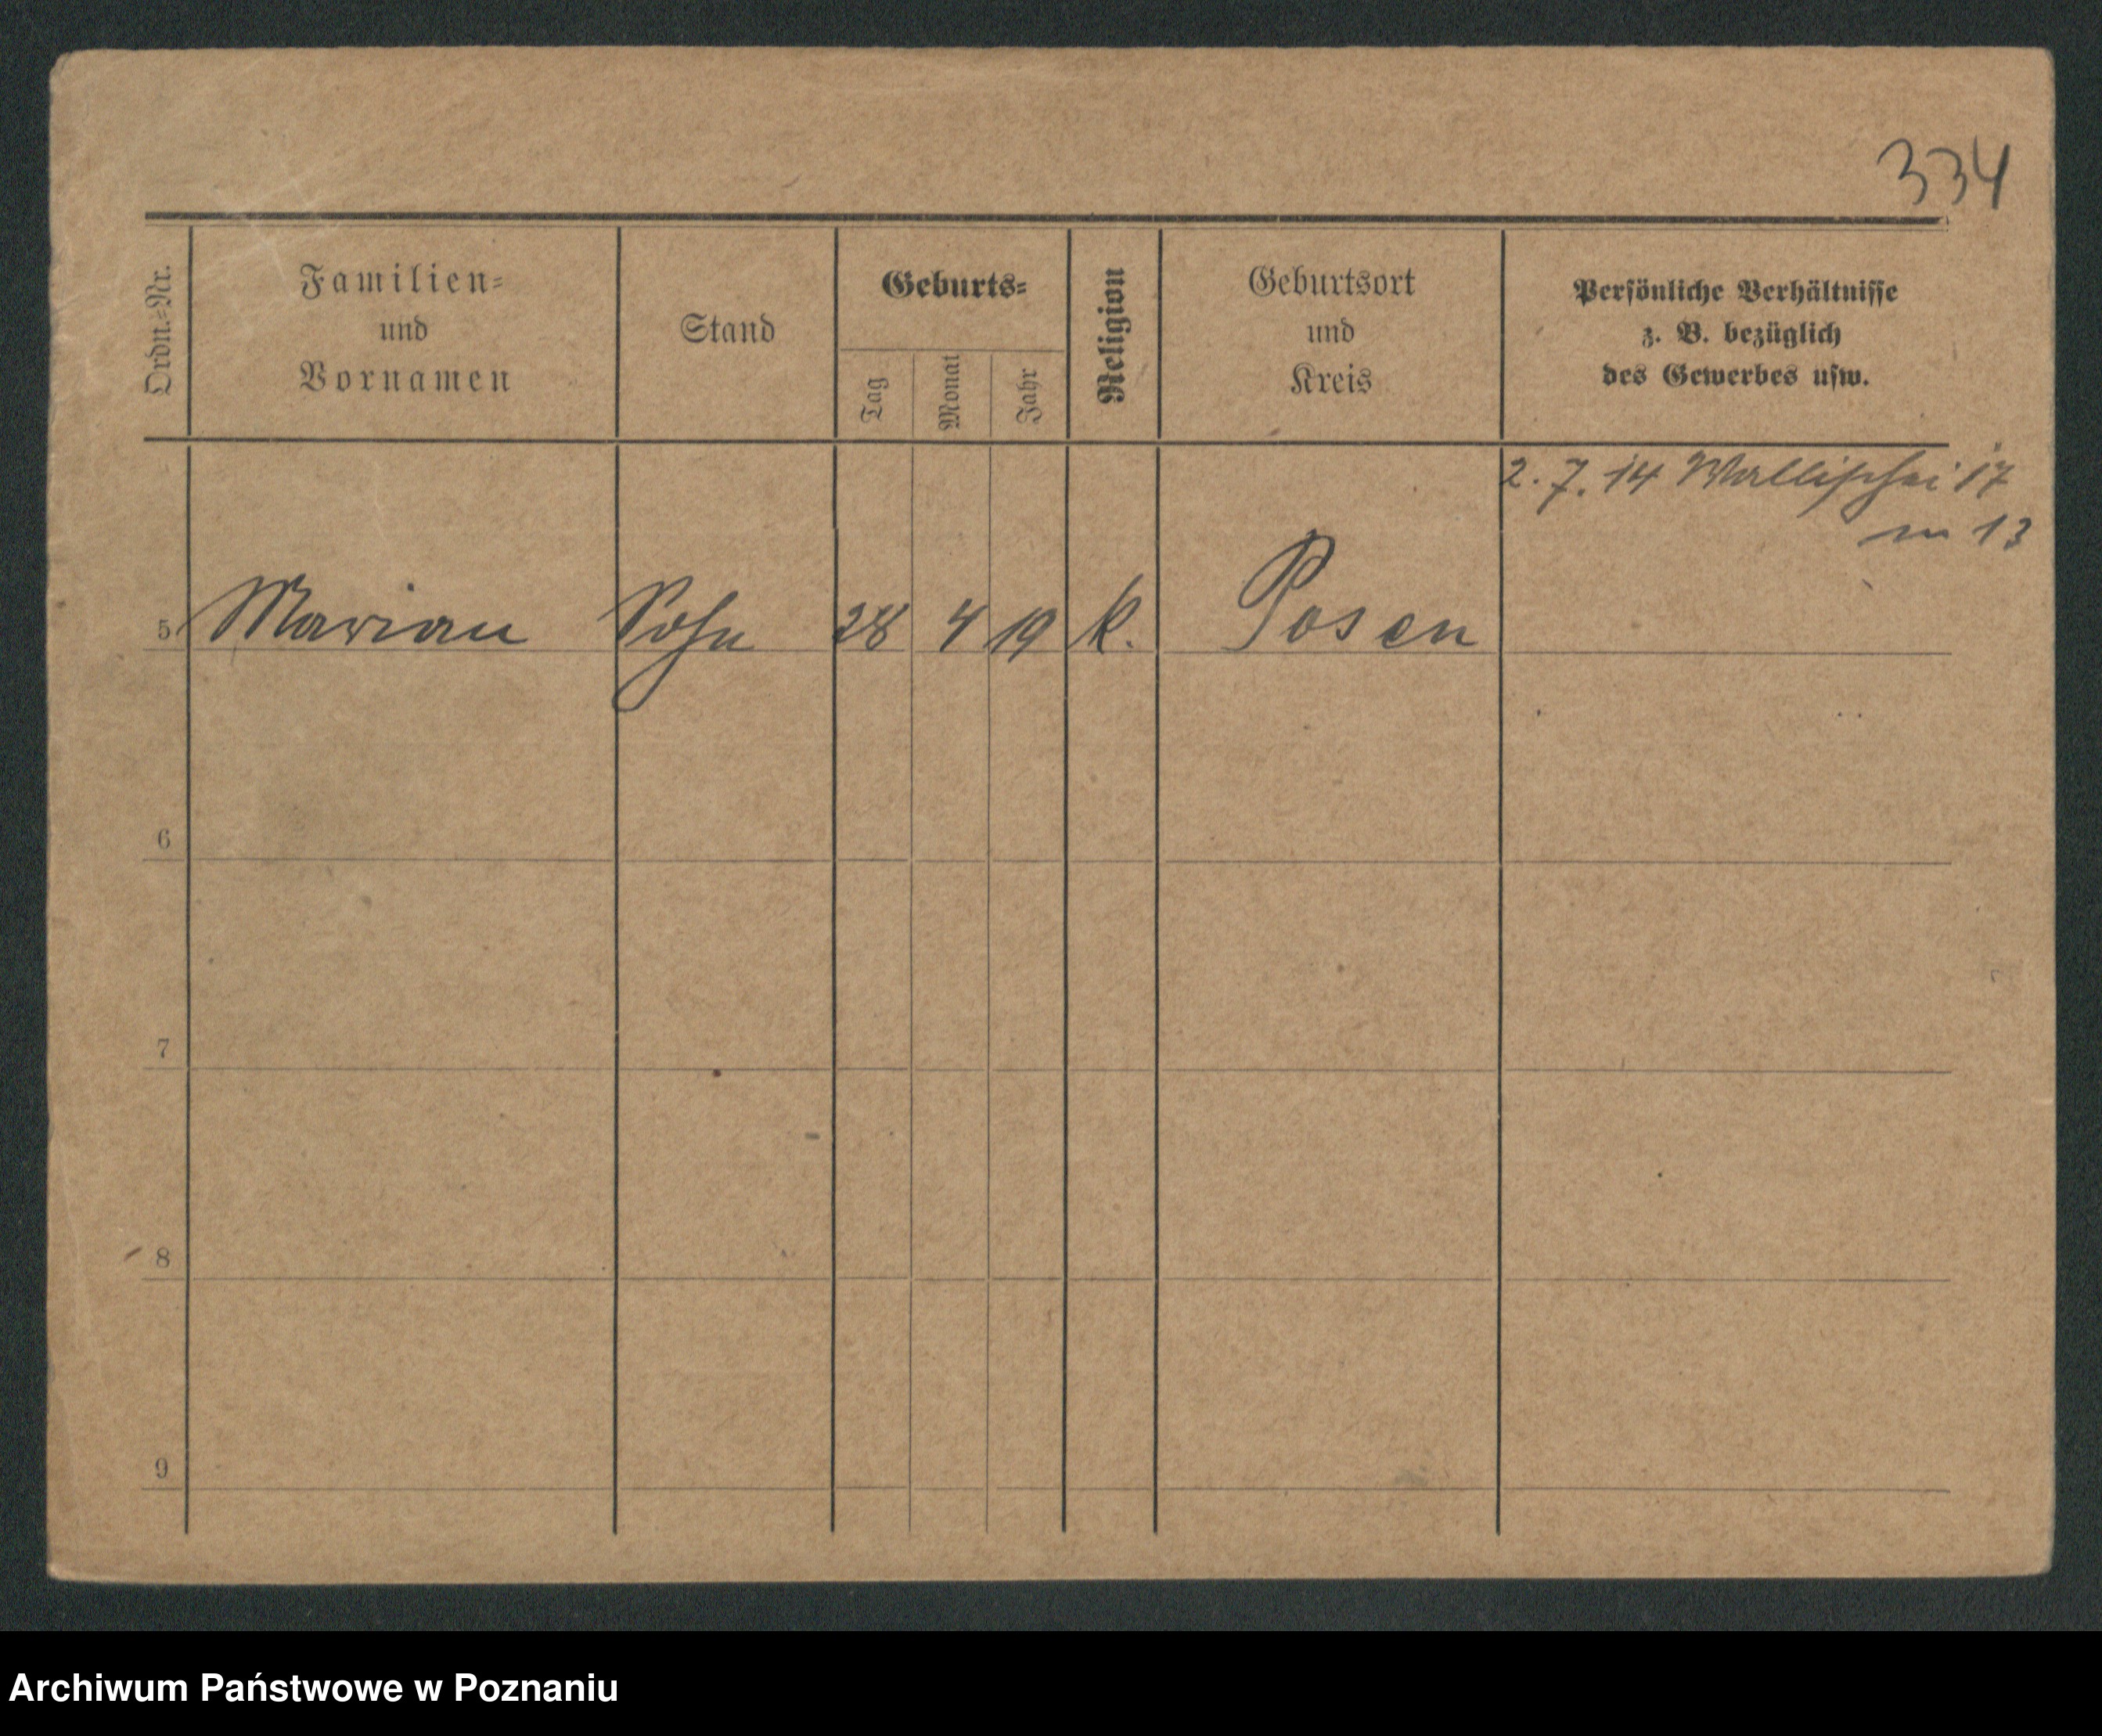 334
Ordn.-Nr.
Familien-
und
Vornamen
Stand
Geburts-
Tag
Monat
Jahr
Religion
Geburtsort
und
Kreis
Persönliche Verhältnisse
z. B. bezüglich
des Gewerbes usw.
2. 7. 14 Wallischei 17
m 13
5 Marian Sohn 28 4 19 k. Posen
6
7
8
9
Archiwum Państwowe w Poznaniu